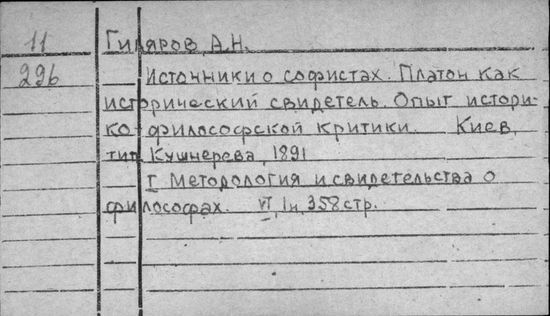 11 Гиляров, А.Н.
296 Источники о софистах. Платон как
исторический свидетель. Опыт истори-
ко-философской критики. Киев,
тип. Кушнерева, 1891
I Меторология и свидетельства о
философах. VI, 358 стр.